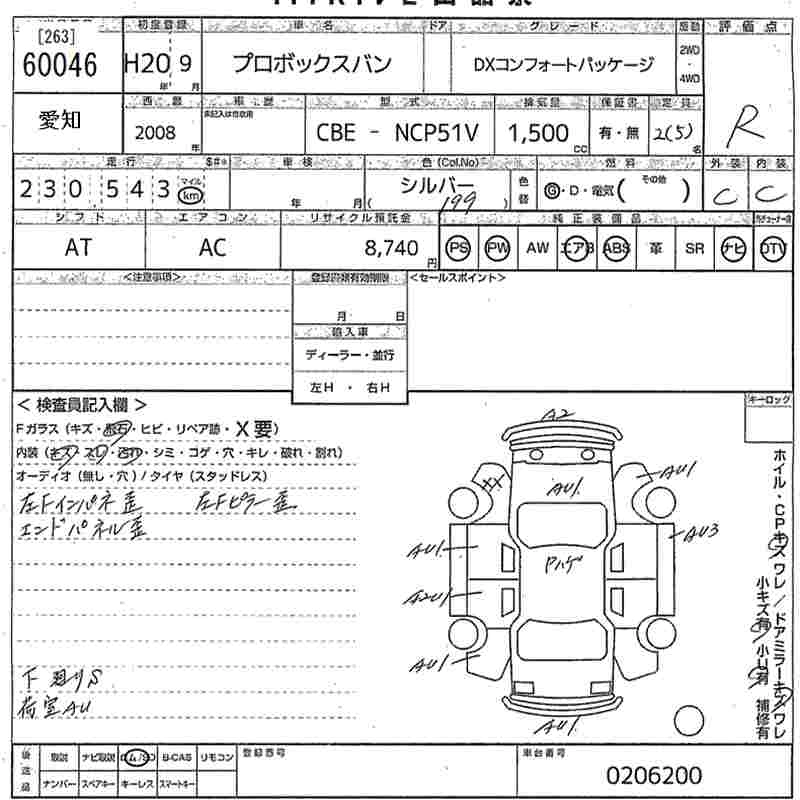 [263]
60046
初度登録 車名 ドア グレード 駆動 評価点
H20 9 年 月
プロボックスバン
DXコンフォートパッケージ
2WD
・
4WD
愛知
西暦 車歴 型式 排気量 保証書 定員
2008 年
未記入は自家用
CBE - NCP51V
1,500 cc
有・無
2(5) 名
R
走行 車検 色(Col.No) 燃料 外装 内装
230,543 マイル km
年 月
シルバー
( 199 )
色替
G・D・電気( その他 )
C C
シフト エアコン リサイクル預託金 純正装備品
AT AC 8,740 円
PS PW AW エアB ABS 革 SR ナビ DTV
<注意事項> 登録書類有効期限 <セールスポイント>
月 日
輸入車
ディーラー・並行
左H ・ 右H
キーロック
< 検査員記入欄 >
Fガラス (キズ・飛石・ヒビ・リペア跡・X要)
内装 (キズ・スレ・汚れ・シミ・コゲ・穴・キレ・破れ・割れ)
オーディオ (無し・穴) / タイヤ (スタッドレス)
左Fインパネ歪 左Fピラー歪
エンドパネル歪
A2
XX
AU1
AU1
AU1
AU3
Pハゲ
A2U1
AU1
AU1
ホイル・CPキズ ワレ / ドアミラーキズ ワレ
小キズ有 小U有 補修有
下廻りS
荷室AU
後送品
取説 ナビ取説 B-CAS リモコン
ナンバー スペアキー キーレス スマートキー
登録番号
車台番号
0206200